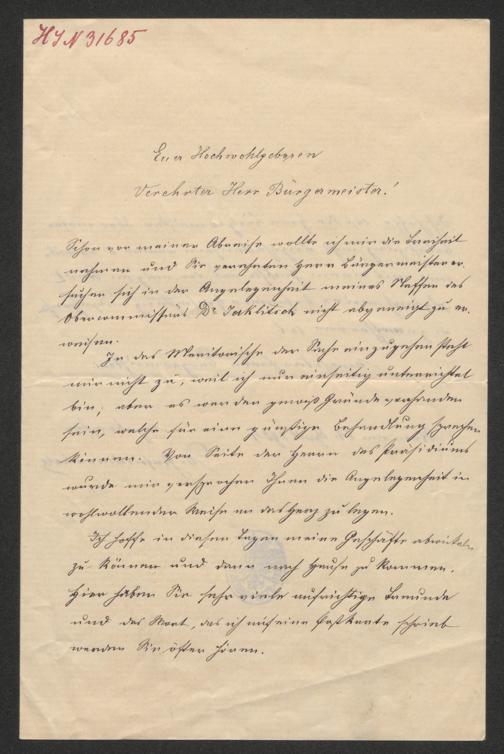 HIN 31685
Euer Hochwohlgeboren
Verehrter Herr Bürgermeister!
Schon vor meiner Abreise wollte ich mir die Freiheit
nehmen und Sie verehrten Herrn Bürgermeister er-
suchen sich in der Angelegenheit meines Neffen des
Obercommissärs Dr Jaklitsch nicht abgeneigt zu er-
weisen.
In das Meritorische der Sache einzugehen steht
mir nicht zu, weil ich nur einseitig unterrichtet
bin; aber es werden gewiß Gründe vorhanden
sein, welche für eine günstige Behandlung sprechen
können. Von Seite der Herren des Präsidiums
wurde mir versprochen Ihnen die Angelegenheit in
wohlwollender Weise an das Herz zu legen.
Ich hoffe in diesen Tagen meine Geschäfte abwickeln
zu können und dann nach Hause zu kommen.
Hier haben Sie sehr viele aufrichtige Freunde
und das Wort, das ich auf eine Postkarte schrieb
werden Sie öfter hören.